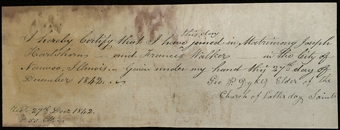 this day
I hereby Certify that I have joined in Matrimony Joseph
Hartshorn and Francis Walker in the City of
Nauvoo, Illinois. Given under my hand this 27th day of
December 1842.
Geo. P. Dykes Elder of the
Church of Latter day Saints
27th Dec 1842.